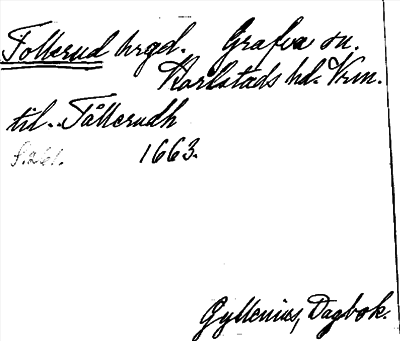 Tollerud hrgd. Grafva sn.
Karlstads hd. Vrm.
til. Tållerudh
s. 261. 1663.
Gyllenius, Dagbok.